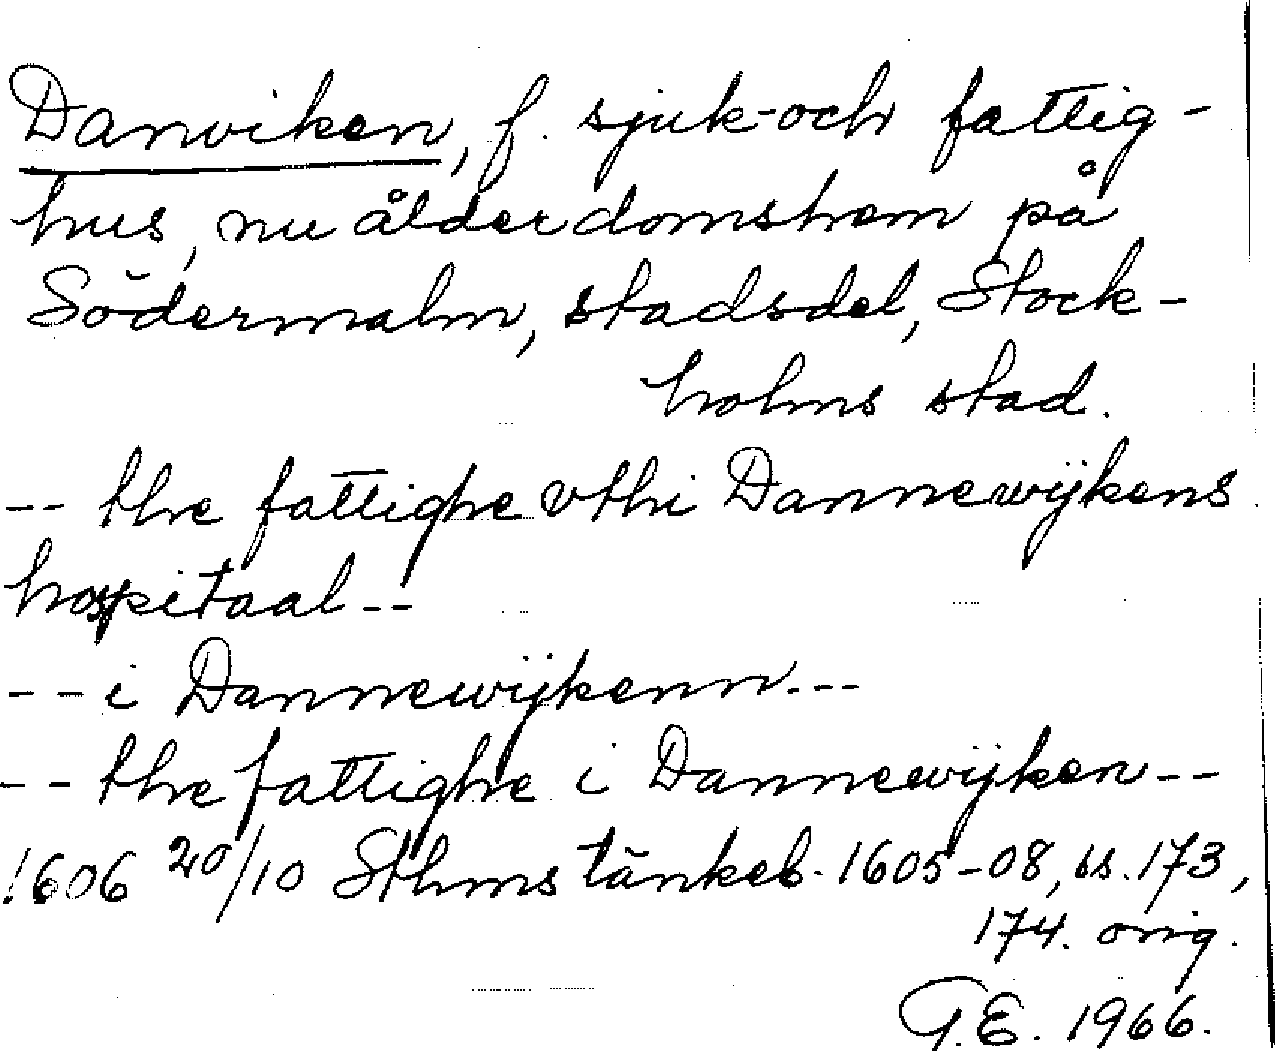 Danviken, f. sjuk- och fattig-
hus, nu ålderdomshem på
Södermalm, stadsdel, Stock-
holms stad.
-- the fattighe vthi Dannewijkens
hospitaal --
-- i Dannewijkenn. --
-- the fattighe i Dannewijken --
1606 20/10 Sthms tänkeb. 1605-08, ss. 173,
174. orig.
G.E. 1966.